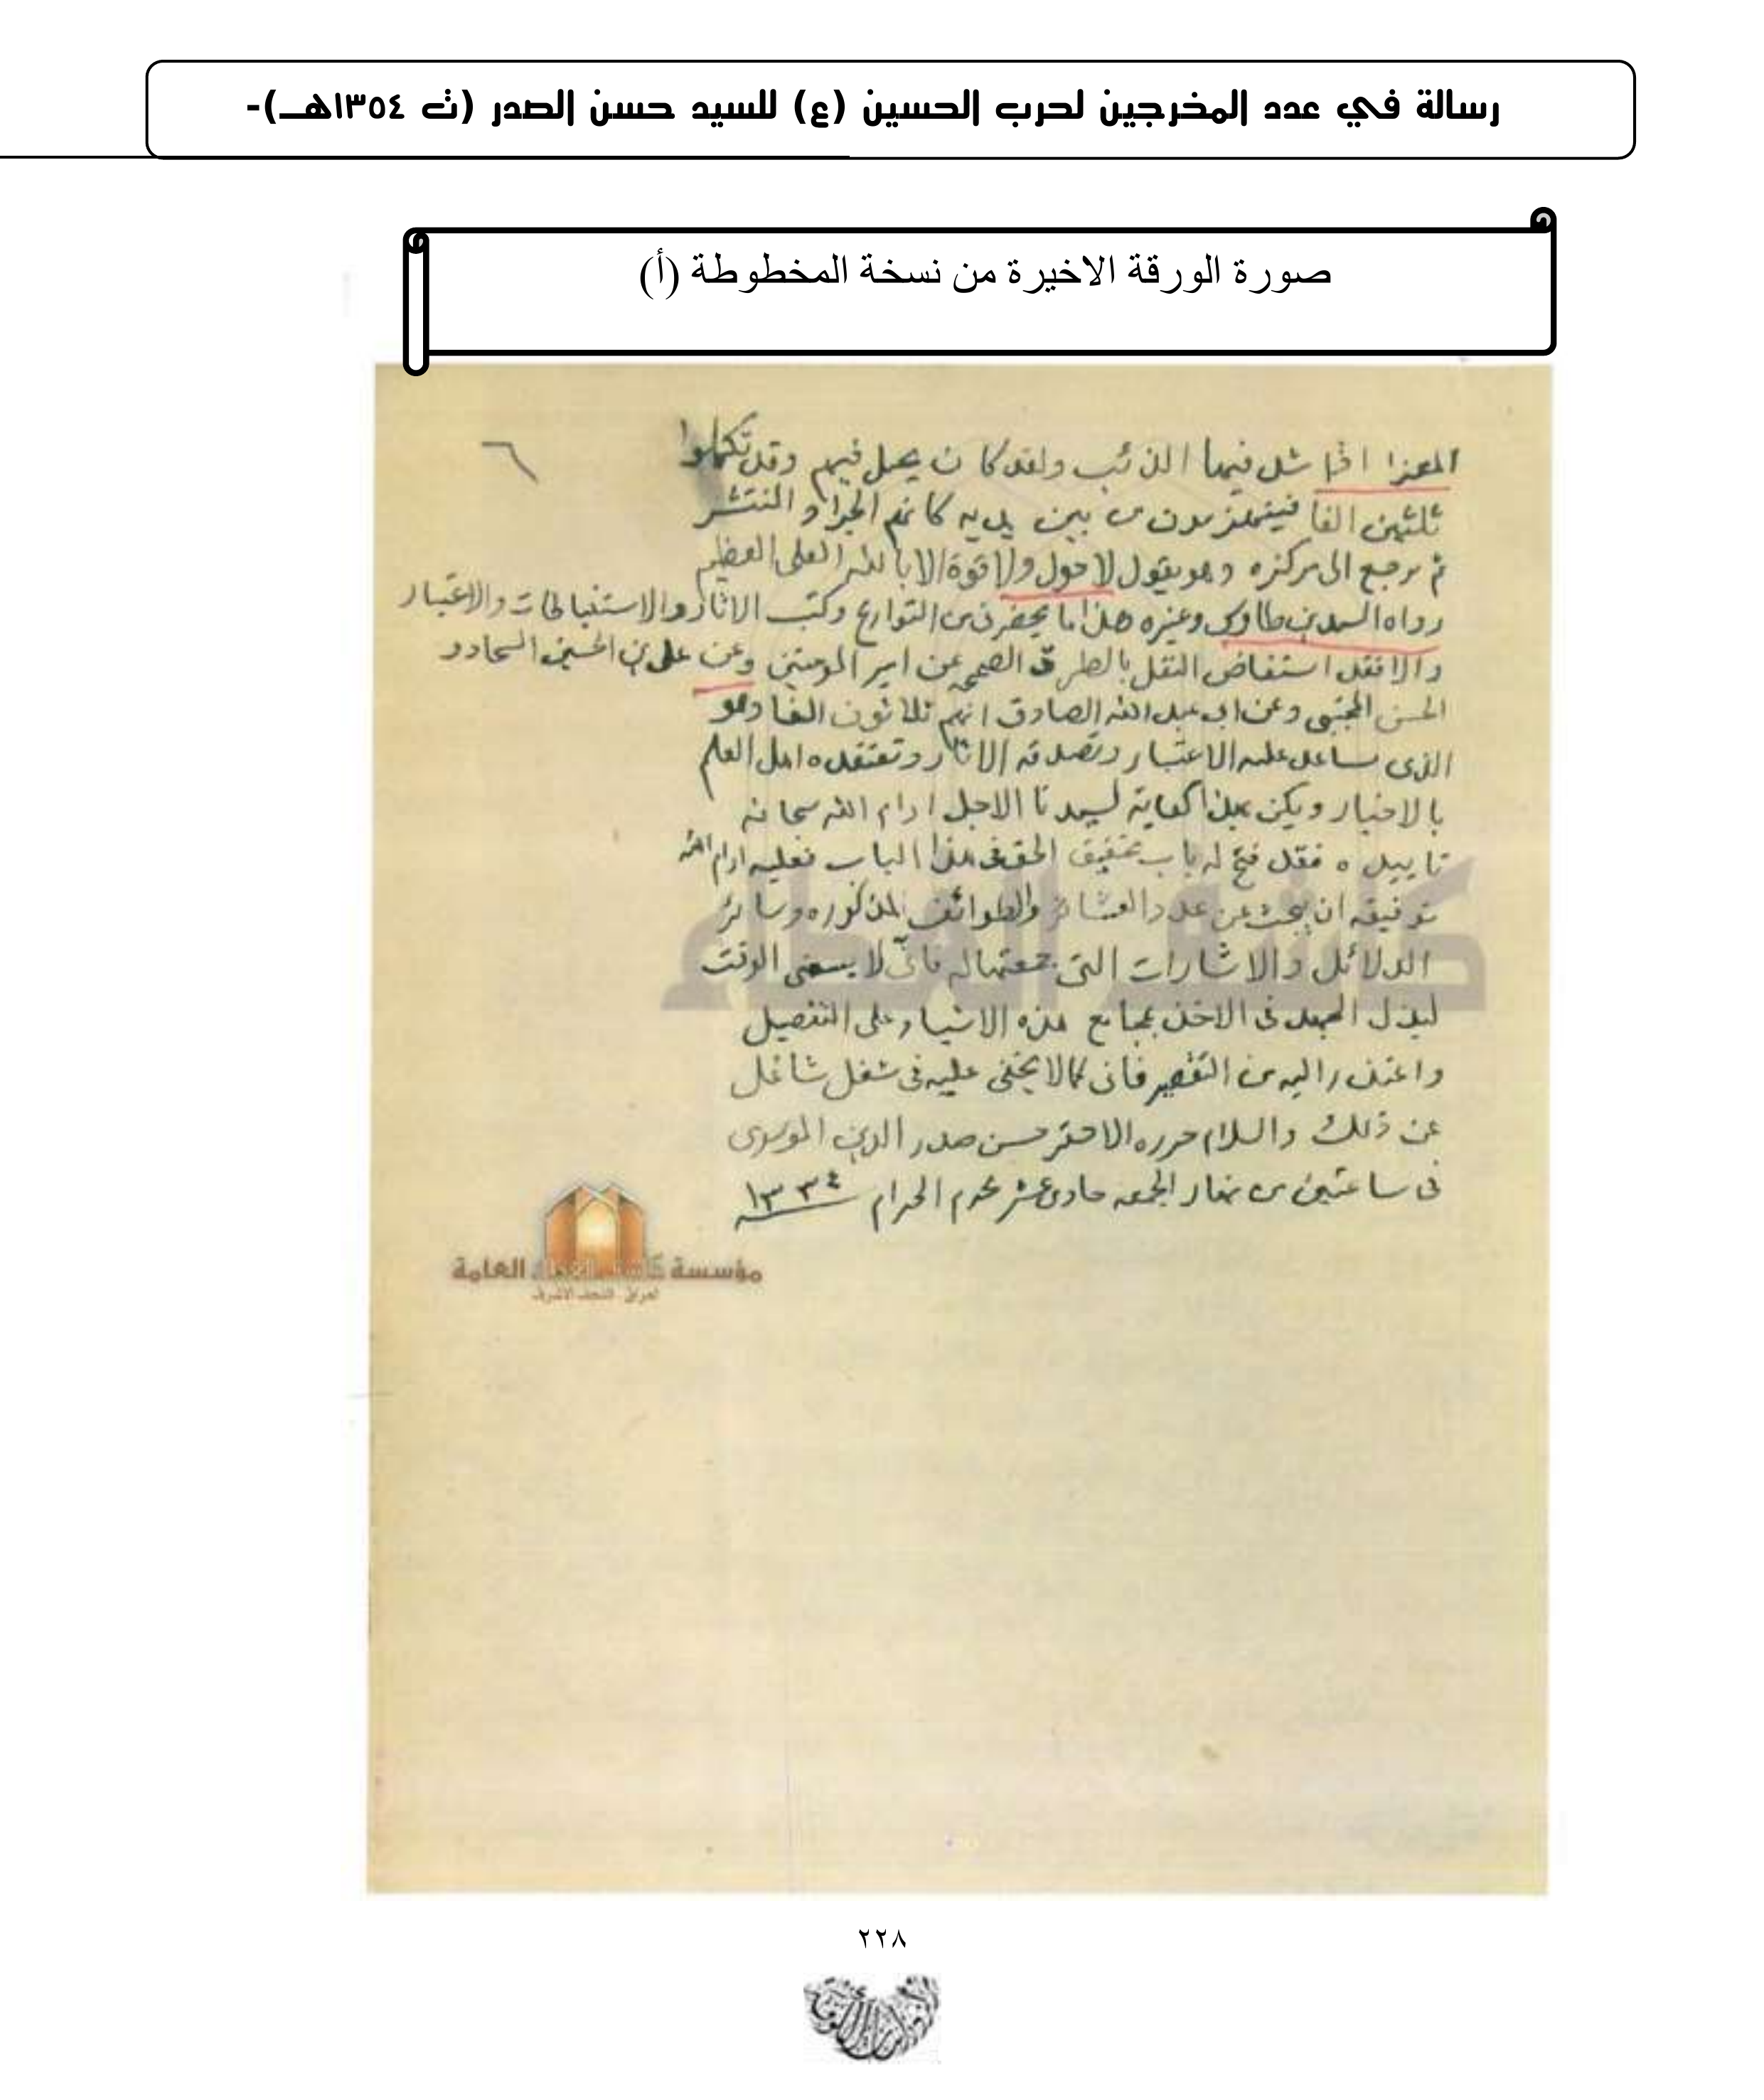 رسالة في عدد المخرجين لحرب الحسين (ع) للسيد حسن الصدر (ت ١٣٥٤هـ)-
صورة الورقة الاخيرة من نسخة المخطوطة (أ)
٦
المعزا اذا شد فيها الذئب ولقد كان يحمل فيهم وقد تكملوا
ثلثين الفا فينهزمون من بين يديه كانهم الجراد المنتشر
ثم يرجع الى مركزه وهو يقول لا حول ولا قوة الا بالله العلى العظيم
رواه السيد بن طاوس وغيره هذا ما يحضرنى من التواريخ وكتب الاثار والاستنباطات والاعتبار
والا فقد استفاض النقل بالطرق الصحيح عن امير المومنين وعن على بن الحسين السجاد و
الحسن المجتبى وعن ابى عبد الله الصادق انهم ثلاثون الفا وهو
الذى ساعد عليه الاعتبار وتصدقه الاثار وتعتقده اهل العلم
بالاخبار ويكفى بهذا كفاية لسيدنا الاجل ادام الله سبحانه
تاييده فقد فتح له باب تحقيق الحق فى هذا الباب فعليه ادام الله
توفيقه ان يبحث عن عدد العشائر والطوائف المذكوره وسائر
الدلائل والاشارات التى جمعتها له فانى لا يسعنى الوقت
لبذل الجهد فى الاخذ بمجامع هذه الاشياء على التفصيل
واعتذر اليه من التقصير فانى كما لا يخفى عليه فى شغل شاغل
عن ذلك والسلام حرره الاحقر حسن صدر الدين الموسوى
فى ساعتين من نهار الجمعه حادى عشر محرم الحرام ١٣٣٤
كاشف الغطاء
مؤسسة كاشف الغطاء العامة
العراق - النجف الاشرف
٢٢٨